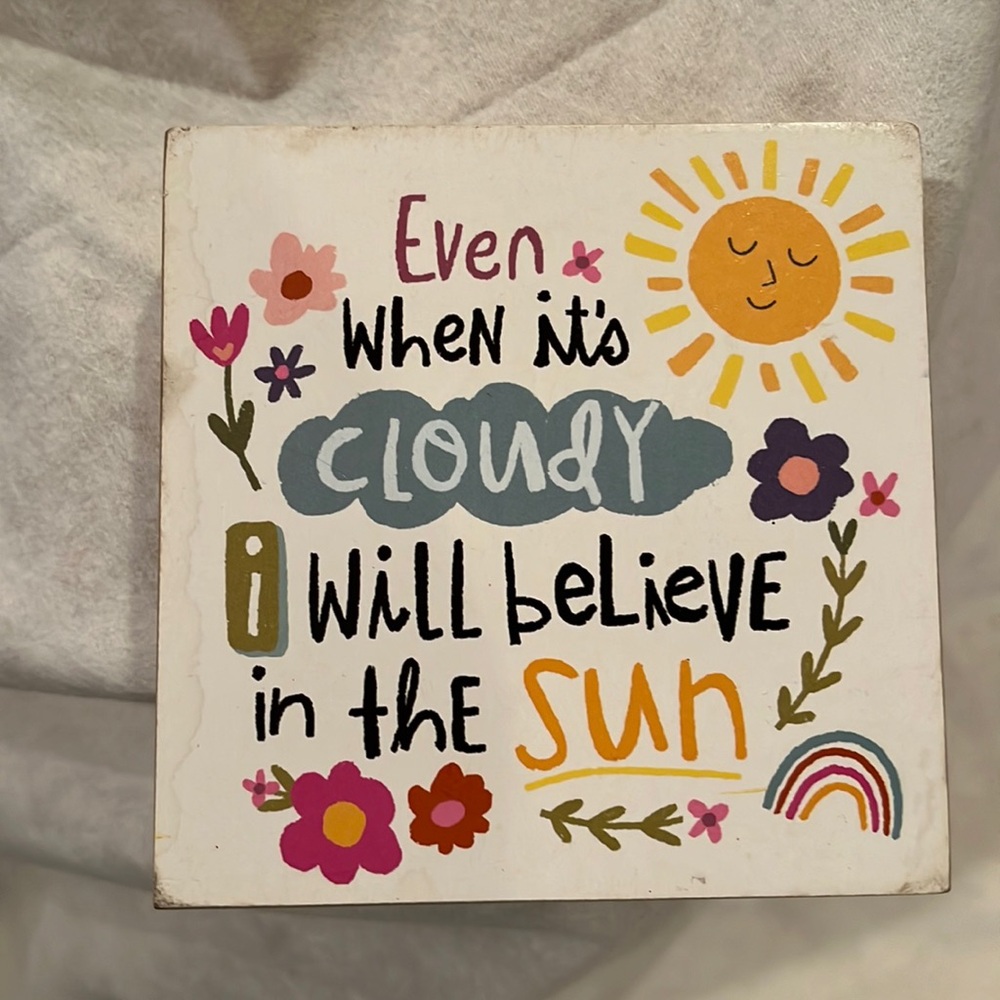 Even
When it's
CLOUDY
i will beLieVE
in the sun